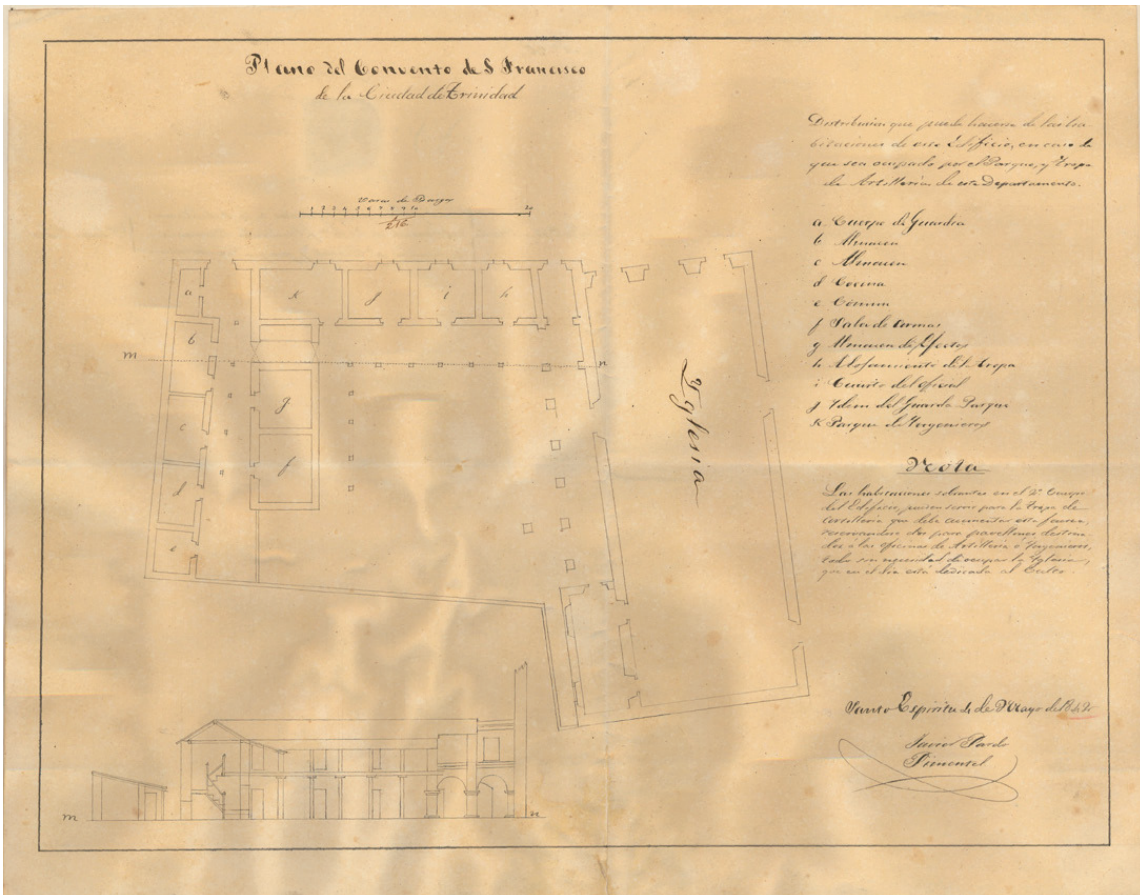 Plano del Convento de S Francisco
de la Ciudad de Trinidad
Varas de Burgos
1 2 3 4 5 6 7 8 9 10 20
1/216
Distribucion que puede hacerse de las ha-
bitaciones de este Edificio, en caso de
que sea ocupado por el Parque, y Tropa
de Artilleria de este Departamento.
a Cuerpo de Guardia
b Almacen
c Almacen
d Cocina
e Comun
f Sala de Armas
g Almacen de Efectos
h Alojamiento de la tropa
i Cuarto del oficial
j Idem del Guarda Parque
k Parque de Yngenieros
Nota
Las habitaciones sobrantes en el 2º Cuerpo
del Edificio, pueden servir para la tropa de
Artilleria que debe aumentar esta fuerza,
reservandose dos para pavellones destina-
dos a las oficinas de Artilleria e Yngenieros,
todo sin necesidad de ocupar la Yglesia,
que en el dia está dedicada al Culto.
a
k
j
i
h
b
m
n
g
c
f
d
e
Yglesia
Santo Espiritu de Mayo de
Javier Pardo
Pimentel
m
n